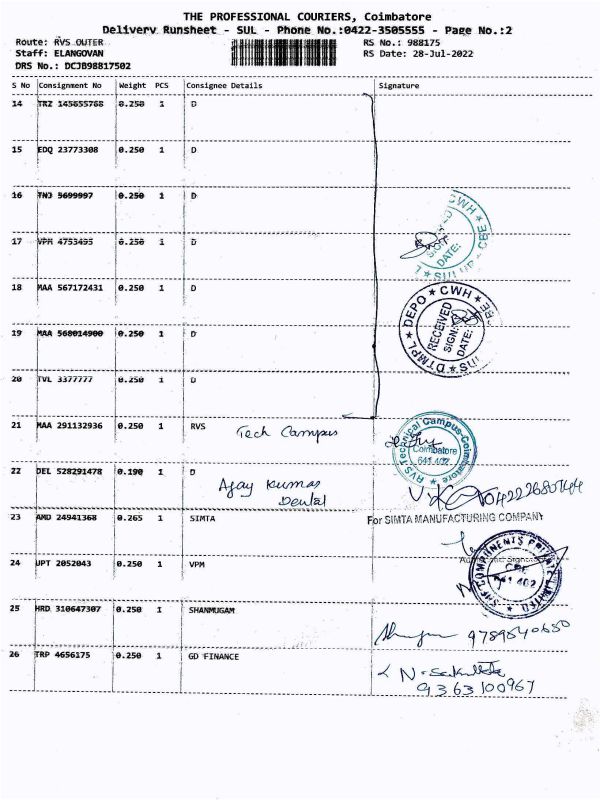 THE PROFESSIONAL COURIERS, Coimbatore
Delivery Runsheet - SUL - Phone No.:0422-3505555 - Page No.:2
Route: RVS OUTER
RS No.: 988175
Staff: ELANGOVAN
RS Date: 28-Jul-2022
DRS No.: DCJB98817502
S No Consignment No Weight PCS Consignee Details Signature
14 TRZ 145655768 0.250 1 D
15 EDQ 23773308 0.250 1 D
16 TNJ 5699997 0.250 1 D
CWH
SULUR - CBE
DATE:
17 VPM 4753495 0.250 1 D
18 MAA 567172431 0.250 1 D
DEPO ★ CWH ★
RECEIVED
SIGN:
DATE:
DTMPL
19 MAA 568014900 0.250 1 D
20 TVL 3377777 0.250 1 D
21 MAA 291132936 0.250 1 RVS Tech Campus
RVS Technical Campus-Coimbatore
Coimbatore
641 402
22 DEL 528291478 0.190 1 D
Ajay Kumar
Dental
23 AMD 24941368 0.265 1 SIMTA
For SIMTA MANUFACTURING COMPANY
24 UPT 2052043 0.250 1 VPM
COMPONENTS PRIVATE LIMITED
CBE
641 402
25 HRD 310647307 0.250 1 SHANMUGAM
9789540650
26 TRP 4656175 0.250 1 GD FINANCE
9363100967